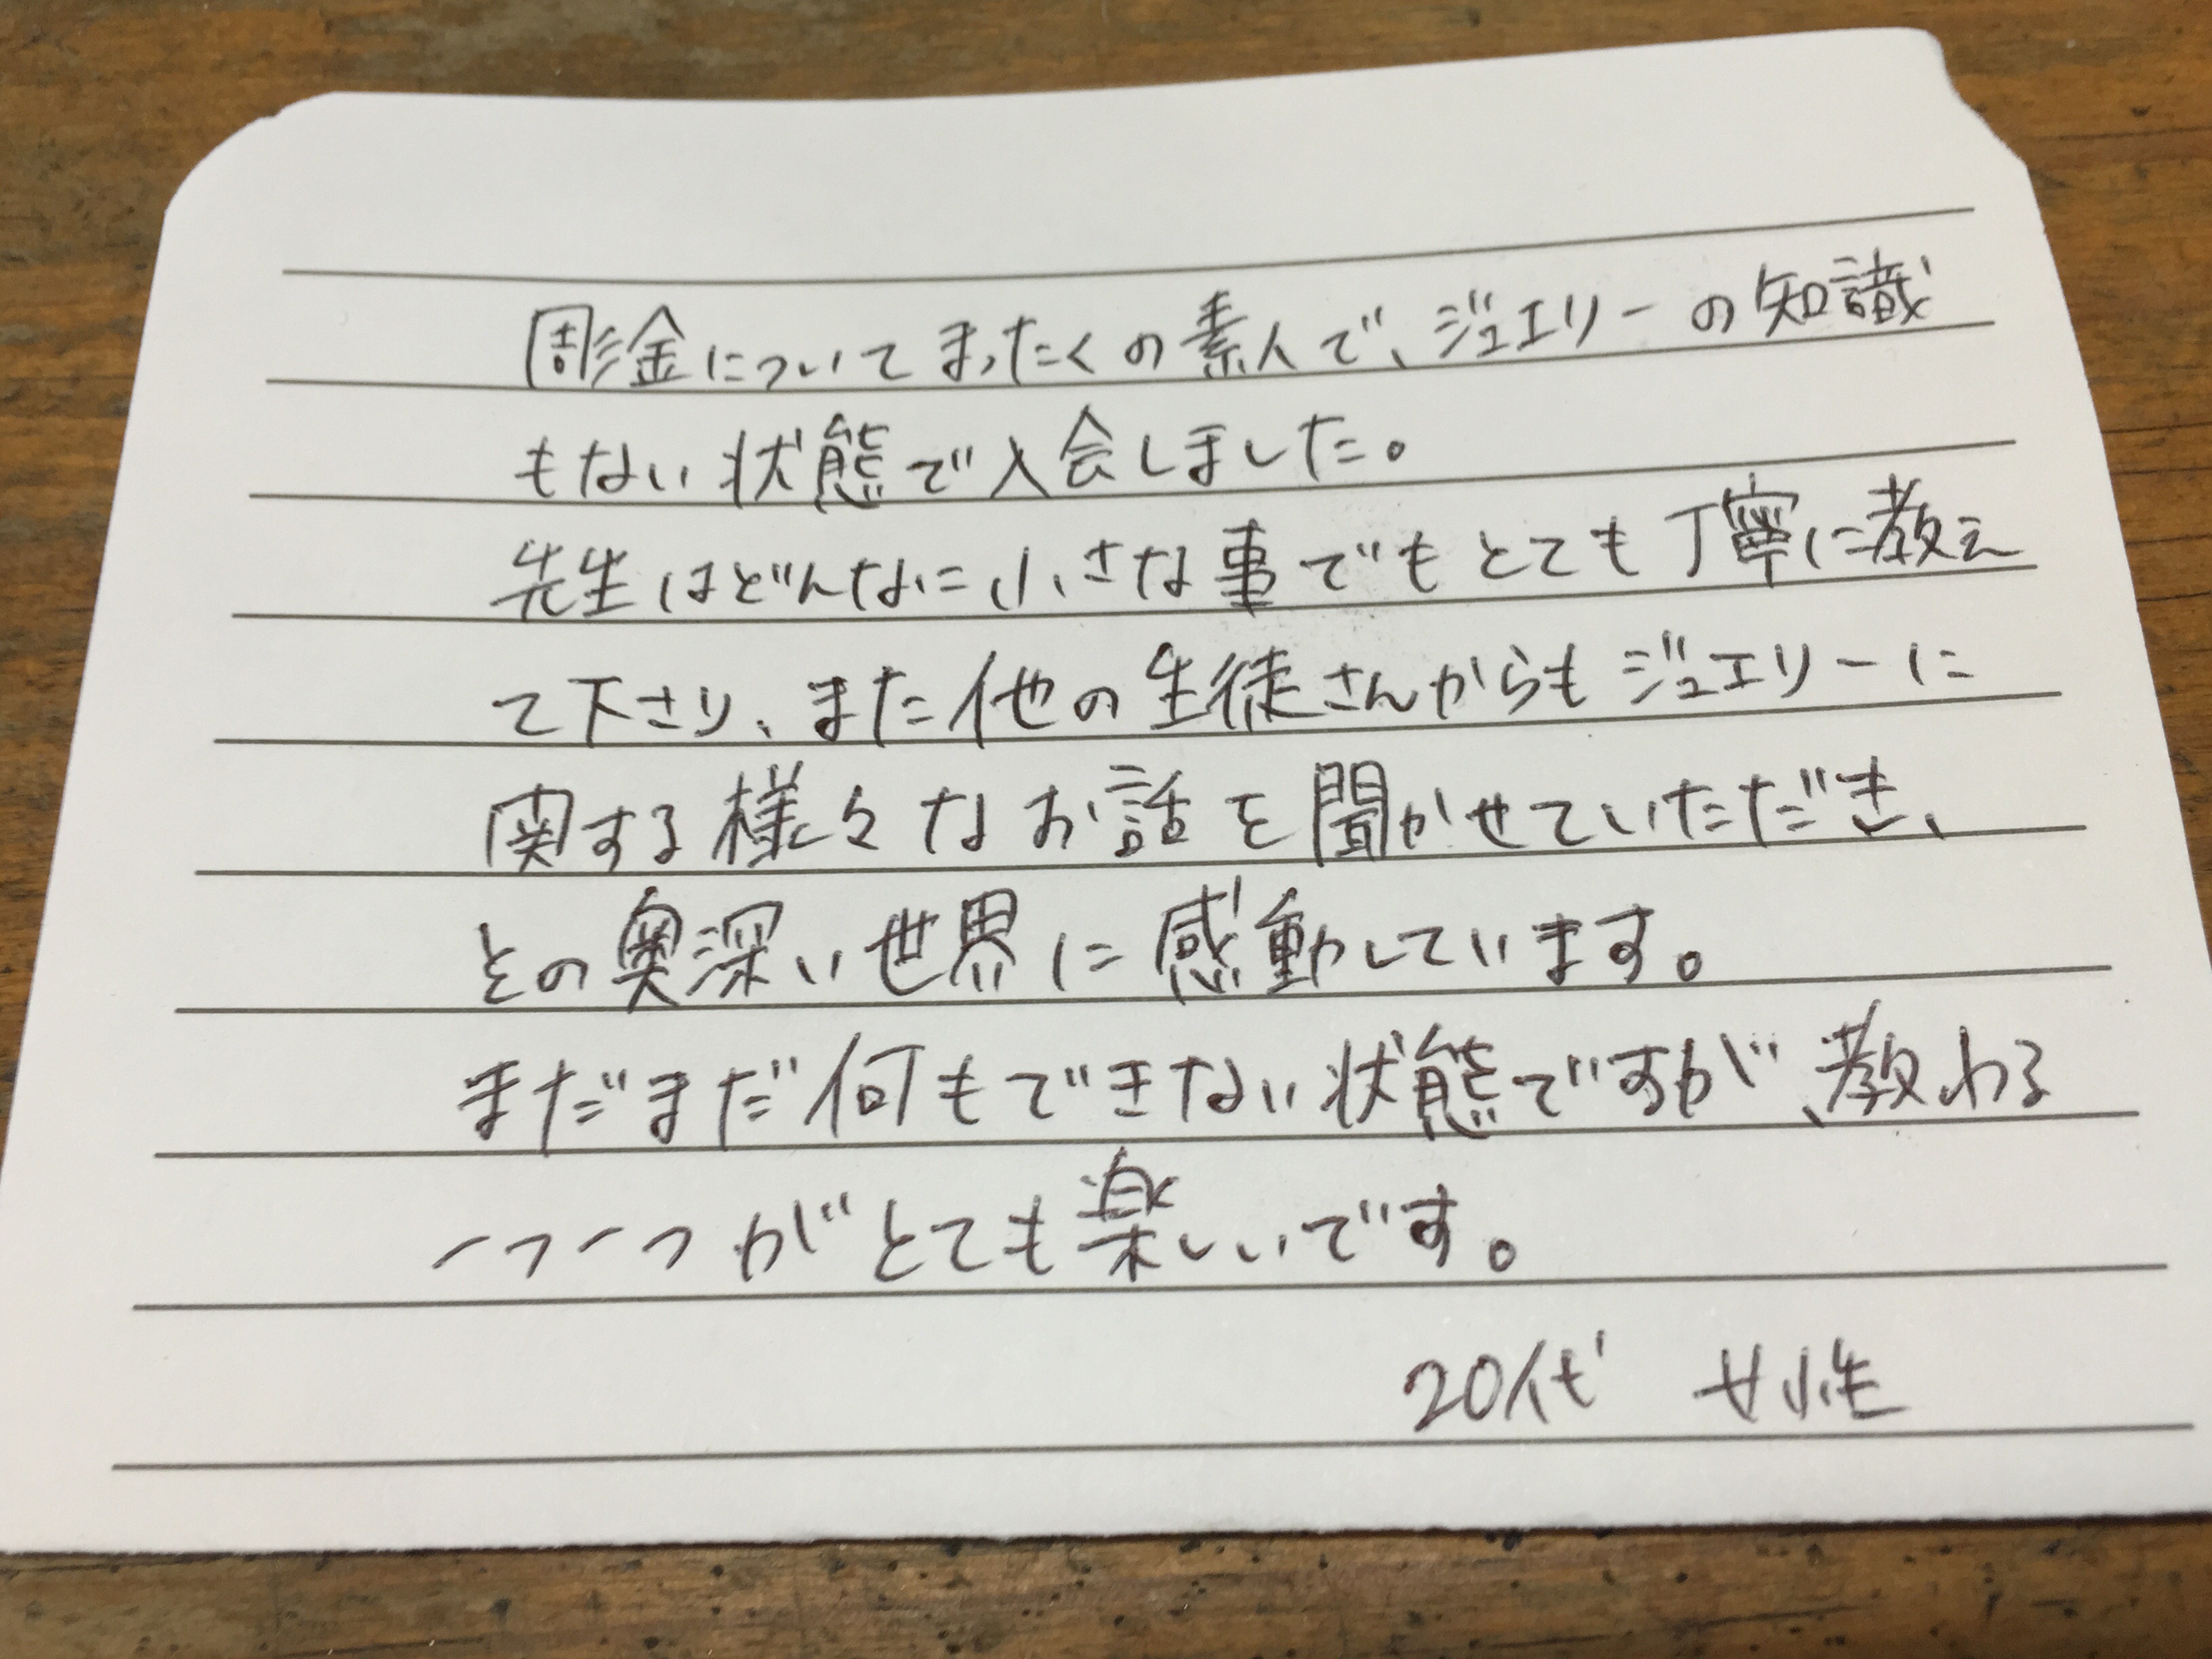 彫金についてまったくの素人で、ジュエリーの知識
もない状態で入会しました。
先生はどんなに小さな事でもとても丁寧に教え
て下さり、また他の生徒さんからもジュエリーに
関する様々なお話を聞かせていただき、
その奥深い世界に感動しています。
まだまだ何もできない状態ですが、教わる
一つ一つがとても楽しいです。
20代　女性